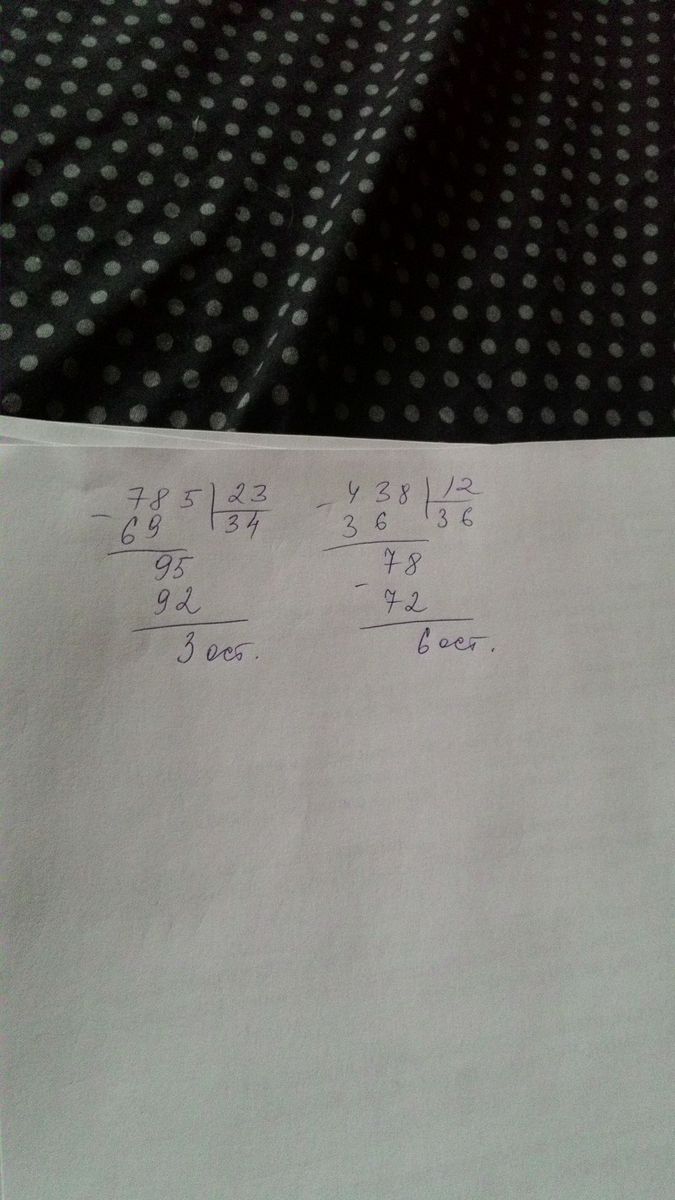 - 785 | 23
69 | 34
95
92
3 ост.
- 438 | 12
36 | 36
78
- 72
6 ост.